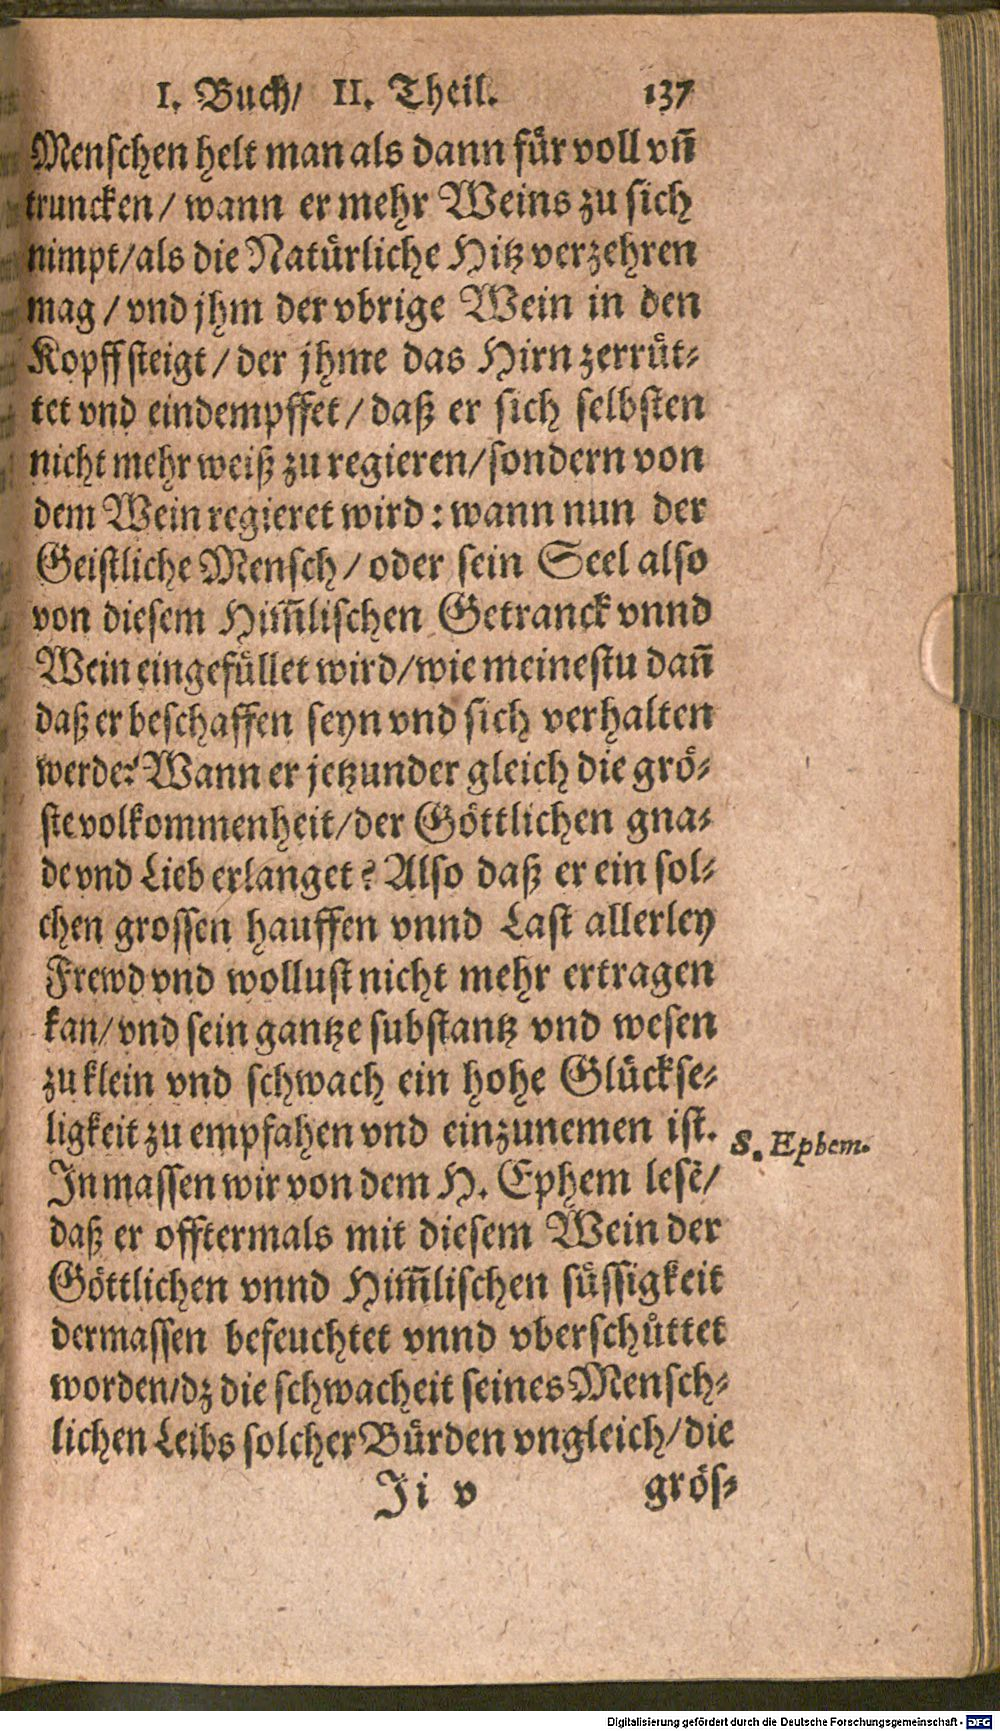 I. Buch/ II. Theil. 137
Menschen helt man als dann für voll vñ
truncken/ wann er mehr Weins zu sich
nimpt/als die Natürliche Hitz verzehren
mag/ vnd jhm der vbrige Wein in den
Kopff steigt/ der jhme das Hirn zerrüt-
tet vnd eindempffet/ daß er sich selbsten
nicht mehr weiß zu regieren/sondern von
dem Wein regieret wird: wann nun der
Geistliche Mensch/ oder sein Seel also
von diesem Him̃lischen Getranck vnnd
Wein eingefüllet wird/wie meinestu dañ
daß er beschaffen seyn vnd sich verhalten
werde? Wann er jetzunder gleich die grö-
ste volkommenheit/der Göttlichen gna-
de vnd Lieb erlanget? Also daß er ein sol-
chen grossen hauffen vnnd Last allerley
Frewd vnd wollust nicht mehr ertragen
kan/ vnd sein gantze substantz vnd wesen
zu klein vnd schwach ein hohe Glückse-
ligkeit zu empfahen vnd einzunemen ist.
S. Ephem.
In massen wir von dem H. Ephem lesẽ/
daß er offtermals mit diesem Wein der
Göttlichen vnnd Him̃lischen süssigkeit
dermassen befeuchtet vnnd vberschüttet
worden/dz die schwacheit seines Mensch-
lichen Leibs solcher Bürden vngleich/die
Ji v grös-
Digitalisierung gefördert durch die Deutsche Forschungsgemeinschaft - DFG